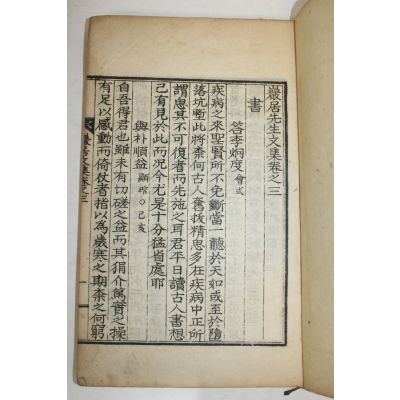 巖居先生文集卷之三
書
答李炯度會式
疾病之來聖賢所不免斷當一聽於天如或至於隕
落坑塹此將柰何古人奮拔精思多在疾病中正所
謂忠其不可復者而先施之耳君平日讀古人書想
己有見於此而況今尤是十分猛省處耶
與朴順益 己亥
自吾得君也雖未有切磋之益而其狷介篤實之操
有足以感動而倚仗者指以爲歲寒之期柰之何窮